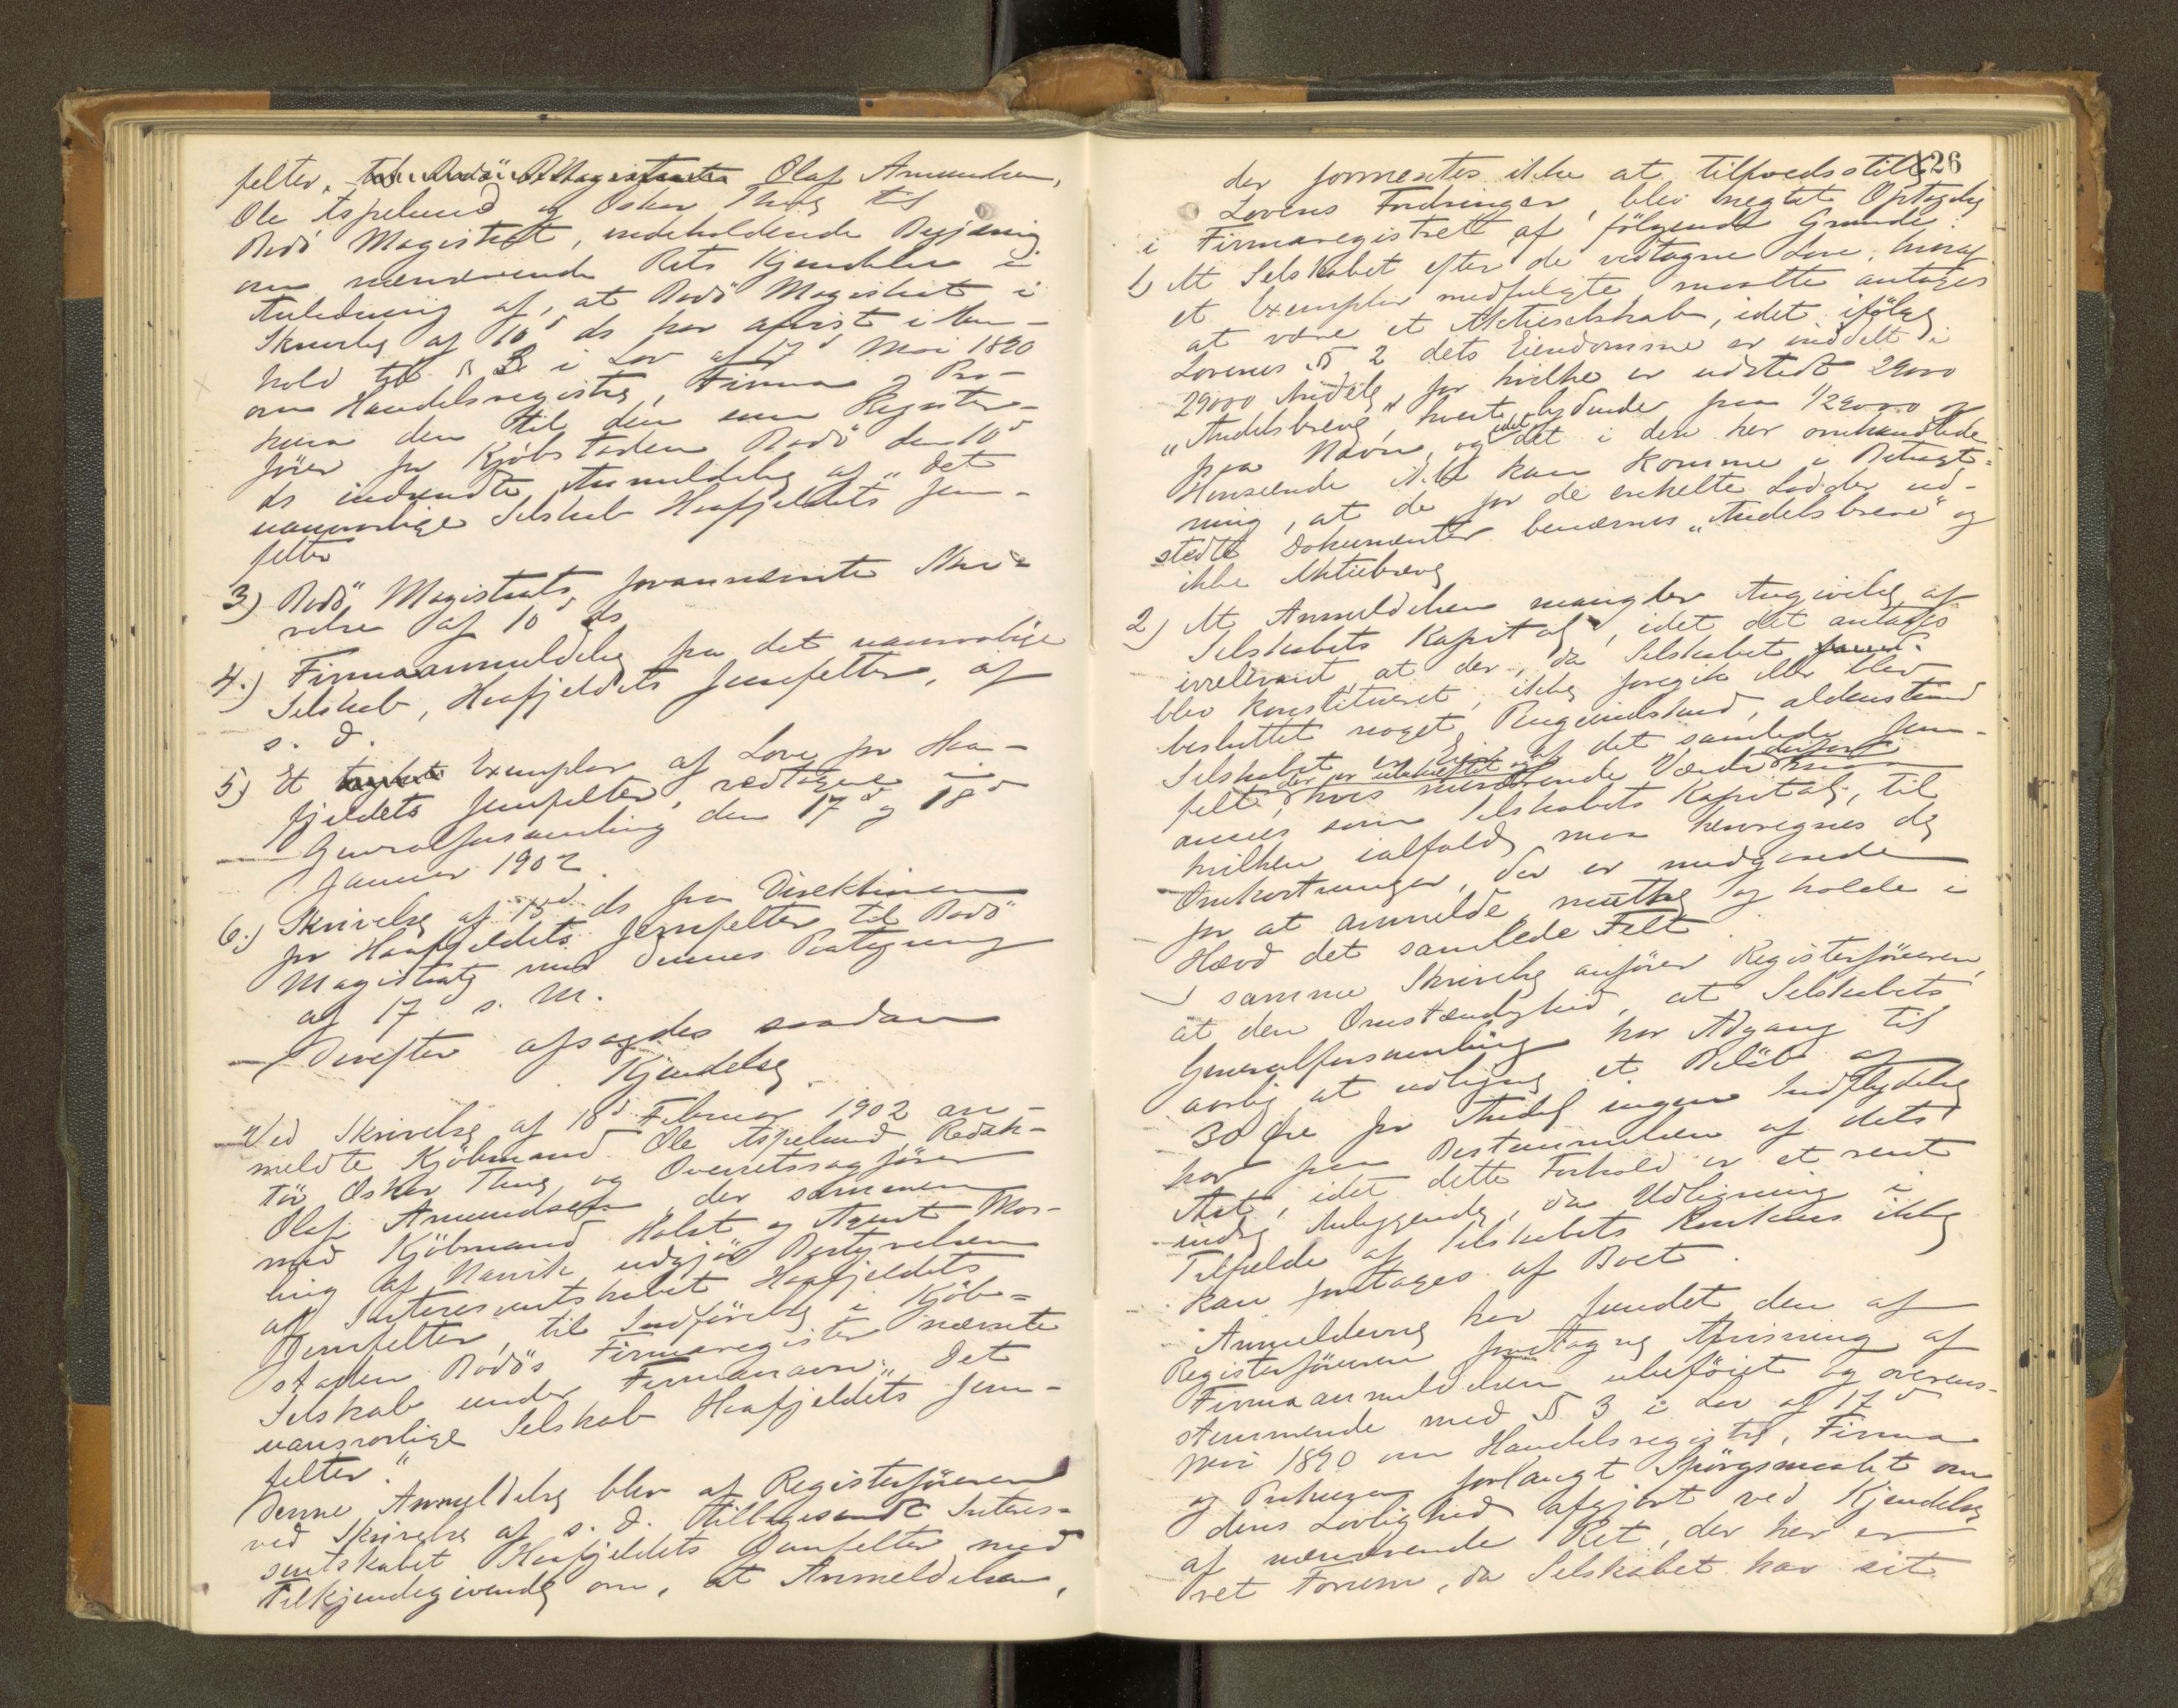 felter, til Bodö Magistrats Olaf Amundsen,
Ole Aspelund og Oskar Thue til
Bodö Magistrat, indeholdende Begjæring
om nærværende Rets Kjendelse i
Anledning af, at Bodö Magistrat i
Skrivelse af 10de ds har afvist i Hen-
hold til § 3 i Lov af 17de Mai 1890
om Handelsregistre, Firma og Pro-
kura den til den som Register-
förer for Kjöbstaden Bodö den 10de
ds indsendte Anmeldelse af "Det
uansvarlige Selskab Haafjeldets Jern-
felter
3) Bodö Magistrats forannævnte Skri-
velse af 10de ds
4.) Firmaanmeldelse fra det uansvarlige
Selskab, Haafjeldets Jernfelter, af
s. D.
5) Et Exemplar af Love for Haa-
fjeldets Jernfelter, vedtagne i
Generalforsamling den 17de og 18de
Januar 1902.
6.) Skrivelse af 15de ds fra Direktionen
for Haafjeldets Jernfelter til Bodö
Magistrat med dennes Paategning
af 17 s. M.
Derefter afsagdes saadan
Kjendelse
Ved Skrivelse af 10de Februar 1902 an-
meldte Kjöbmand Ole Aspelund, Redak-
tör Oskar Thue og Overretssagförer
Olaf Amundsen der sammen
med Kjöbmand Holst og Agent Mos-
ling af Narvik udgjör Bestyrelsen
af Interessentskabet Haafjeldets
Jernfelter, til Indförelse i Kjöb-
staden Bodös Firmaregister nævnte
Selskab under Firmanavn: "Det
uansvarlige Selskab Haafjeldets Jern-
felter."
Denne Anmeldelse blev af Registerföreren
ved Skrivelse af s. D. tilbagesendt Interes-
sentskabet Haafjeldets Jernfelter med
Tilkjendegivende om, at Anmeldelsen,
126
der formentes ikke at tilfredsstille
Lovens Fordringer, blev negtet Optagelse
i Firmaregistret af fölgende Grunde:
1) At Selskabet efter de vedtagne Love, hvoraf
et Exemplar medfulgte, maatte antages
at være et Aktieselskab, idet ifölge
Lovenes § 2 dets Eiendomme er inddelt i
29000 Andele, for hvilke er udstedt 29000
"Andelsbreve", hvert lydende paa 1/29000 og
paa Navn, og idet det i den her omhandlede
Henseende ikke kan komme i Betragt-
ning, at de for de enkelte Lodder ud-
stedte Dokumenter benævnes "Andelsbreve" og
ikke Aktiebreve
2) At Anmeldelsen mangler Angivelse af
Selskabets Kapital, idet det antages
irrelevant, at der, da Selskabet
blev konstitueret, ikke foregik eller blev
besluttet noget Pengeindskud, aldenstund
Selskabet er Eier af det samlede Jern-
felt, hvis nærværende Værdi derfor maa
ansees som Selskabets Kapital, til
hvilken ialfald maa henregnes de
Omkostninger, der er medgaaede
for at anmelde, muthe og holde i
Hævd det samlede Felt.
I samme Skrivelse anförer Registerföreren,
at den Omstændighed, at Selskabets
Generalforsamling har Adgang til
aarlig at udligne et Belöb af
30 Öre pr Andel ingen Indflydelse
har paa Bestemmelsen af dets
Art, idet dette Forhold er et rent
indre Anliggende, da Udligning i
Tilfælde af Selskabets Konkurs ikke
kan foretages af Boet.
Anmelderne har fundet den af
Registerföreren foretagne Afvisning af
Firmaanmeldelsen ubeföiet og overens-
stemmende med § 3 i Lov af 17de
Mai 1890 om Handelsregistre, Firma
og Prokura forlangt Spörgsmaalet om
dens Lovlighed afgjort ved Kjendelse
af nærværende Ret, der her er
ret Forum, da Selskabet har sit